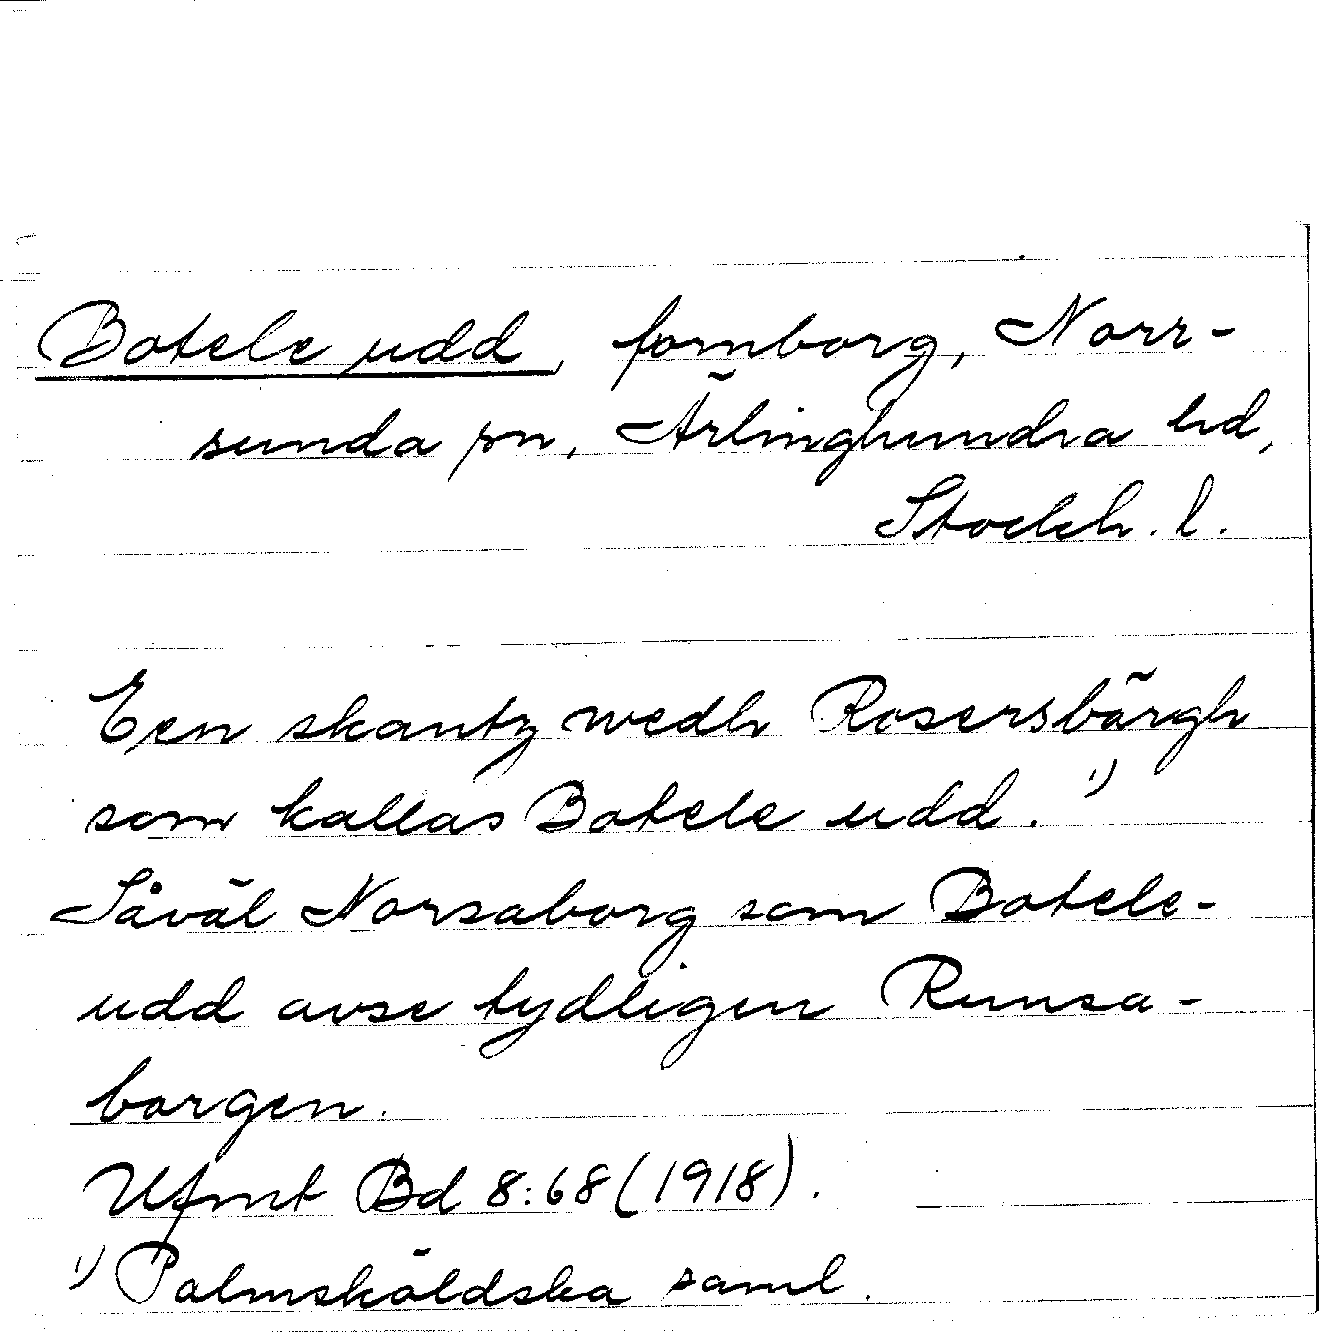 Botele udd, fornborg, Norr-
sunda sn, Ärlinghundra hd,
Stockh. l.
Een skantz wedh Rosersbärgh
som kallas Botele udd. 1)
Såväl Norsaborg som Botele-
udd avse tydligen Runsa-
borgen.
Ufmt Bd 8:68 (1918).
1) Palmsköldska saml.